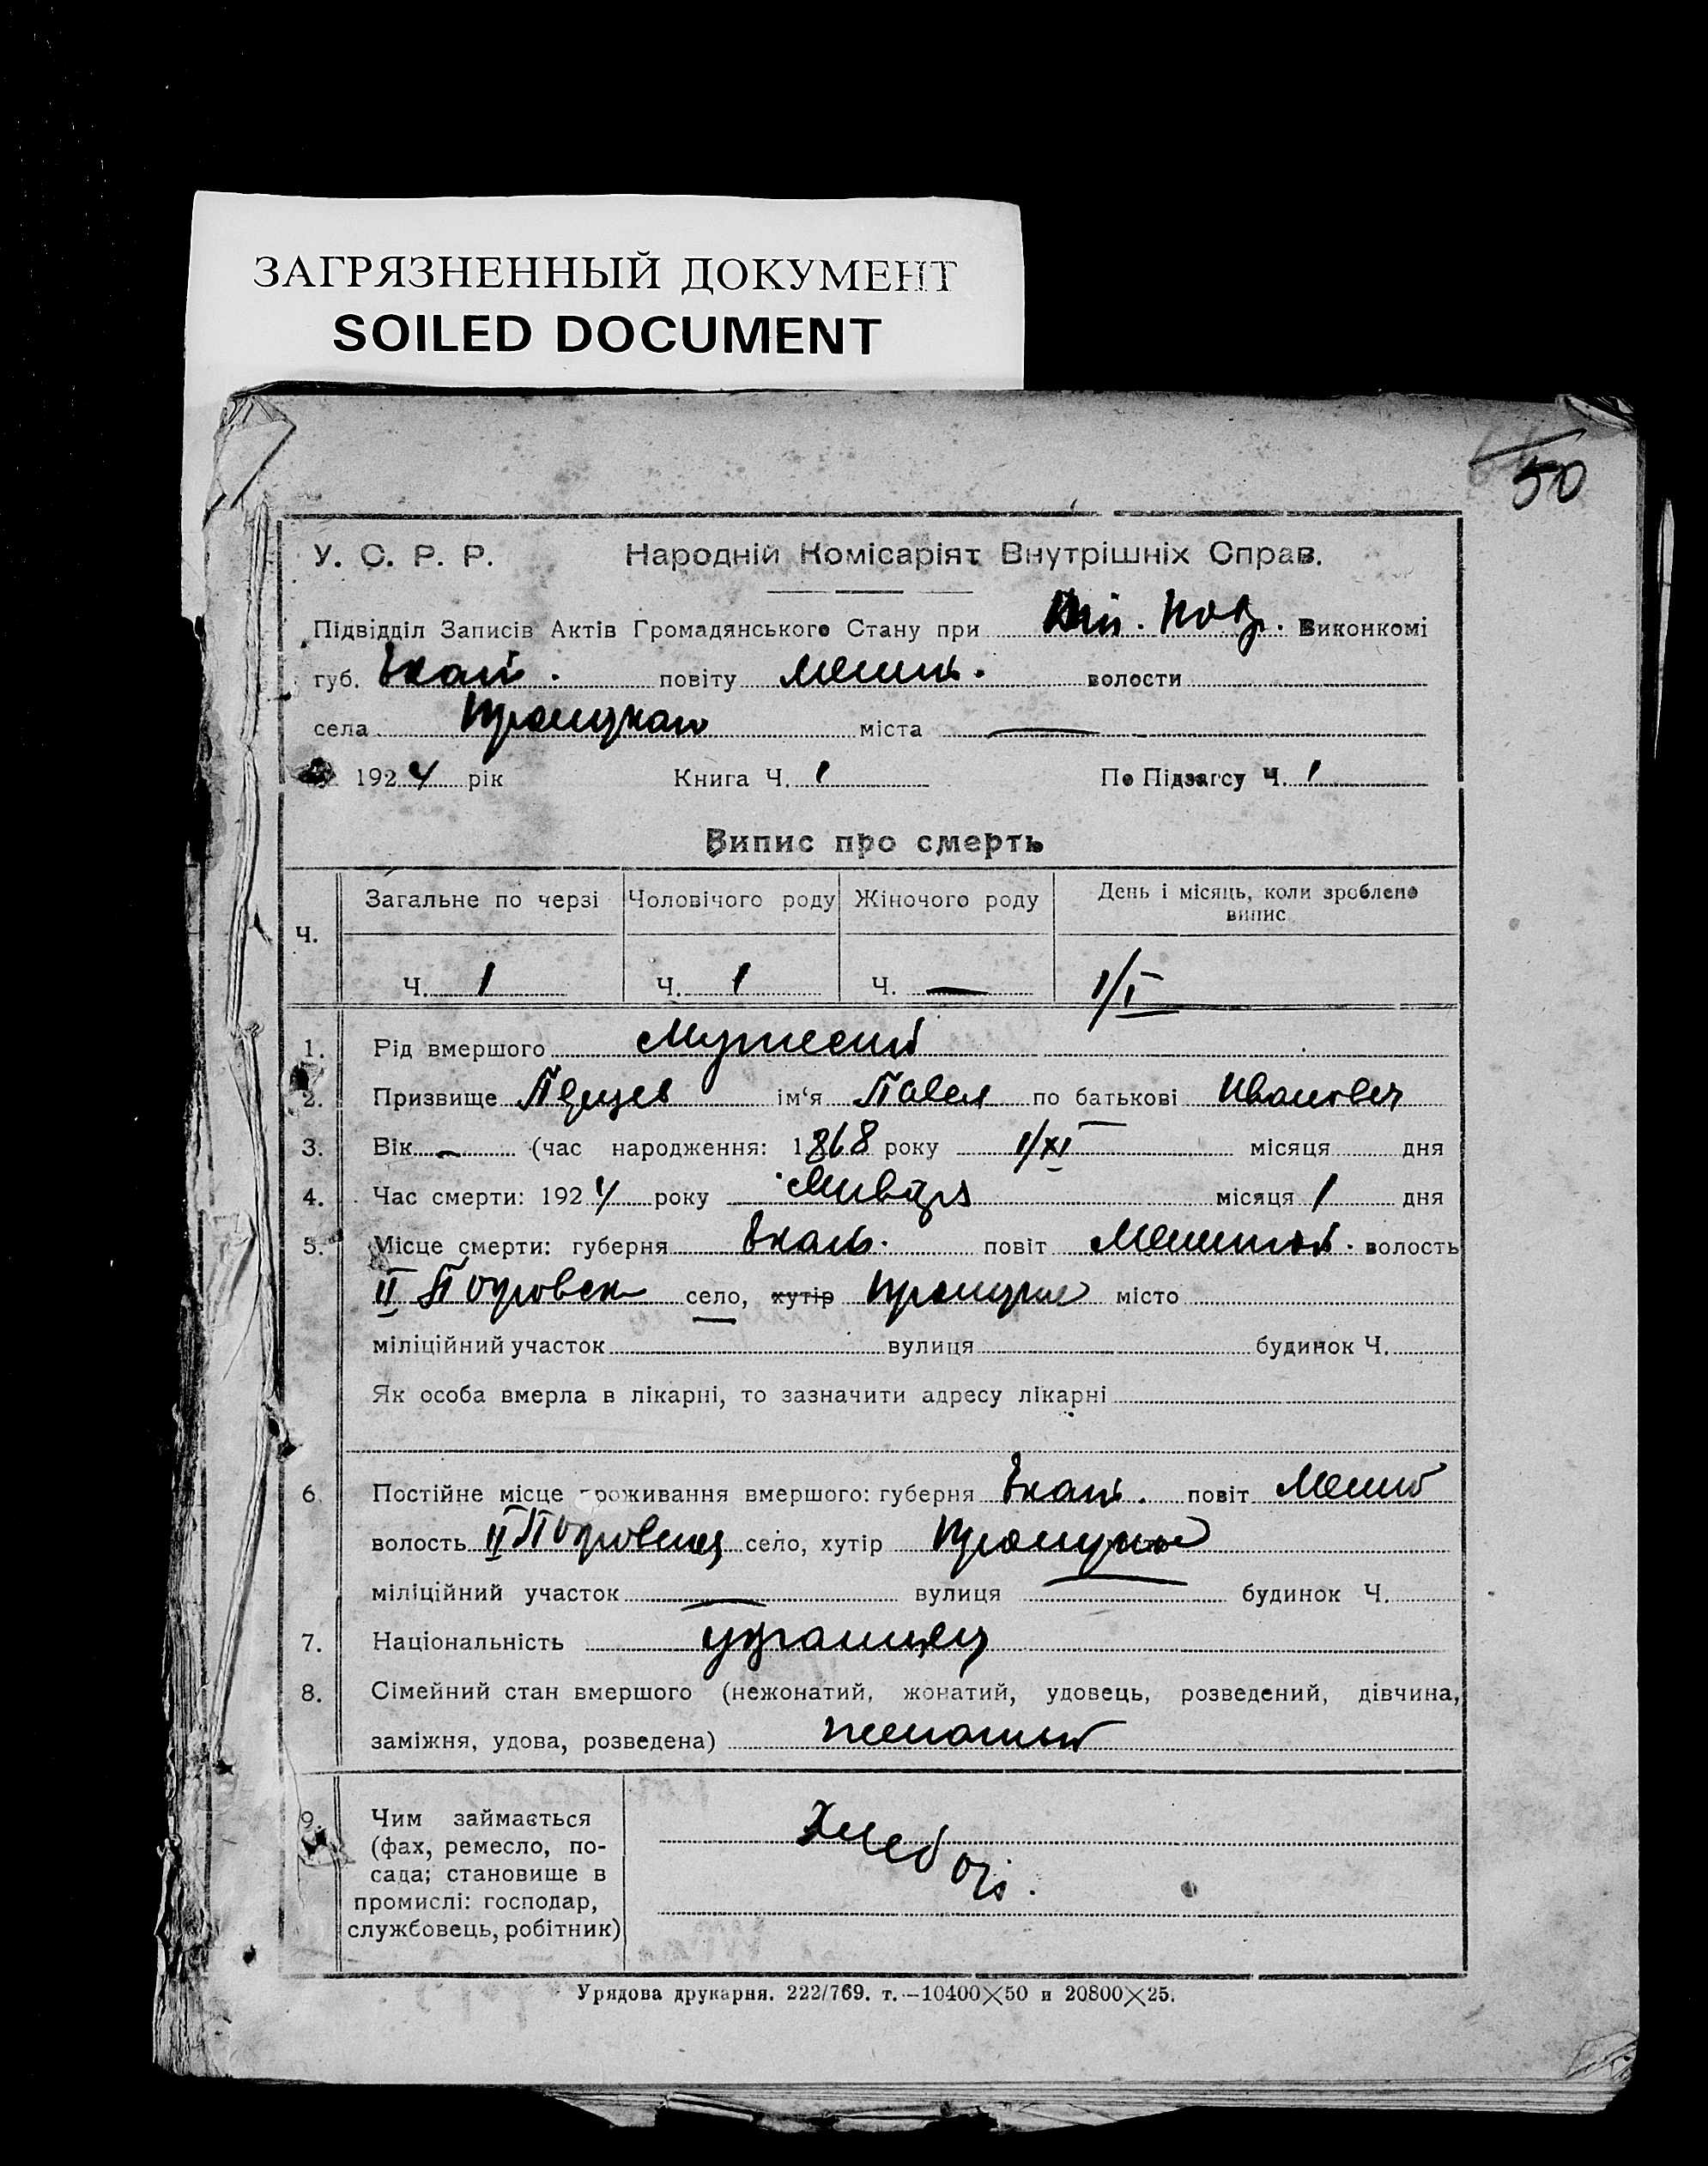 ЗАГРЯЗНЕННЫЙ ДОКУМЕНТ
SOILED DOCUMENT
50
У. С. Р. Р. Народній Комісаріят Внутрішніх Справ.
Підвідділ Записів Актів Громадянського Стану при Виконкомі
губ. Екат. повіту Мелит. волости
села міста —
1924 рік Книга Ч. 1 По Підзагсу Ч. 1
Випис про смерть
Ч. Загальне по черзі Чоловічого роду Жіночого роду День і місяць, коли зроблено випис
Ч. 1 Ч. 1 Ч. — 1/I
1. Рід вмершого Мужеский
2. Призвище ім'я Павел по батькові Иванович
3. Вік - (час народження: 1868 року 1/XI місяця дня
4. Час смерти: 1924 року Января місяця 1 дня
5. Місце смерти: губерня Екат. повіт Мелитоп. волость
II Покровск село, хутір місто
міліційний участок вулиця будинок Ч.
Як особа вмерла в лікарні, то зазначити адресу лікарні
6. Постійне місце проживання вмершого: губерня Екат. повіт Мелит
волость II Покровская село, хутір
міліційний участок — вулиця — будинок Ч.
7. Національність украинец
8. Сімейний стан вмершого (нежонатий, жонатий, удовець, розведений, дівчина,
заміжня, удова, розведена) женатый
9. Чим займається
(фах, ремесло, по-
сада; становище в
промислі: господар,
службовець, робітник)
Хлебор.
Урядова друкарня. 222/769. т.—10400×50 и 20800×25.